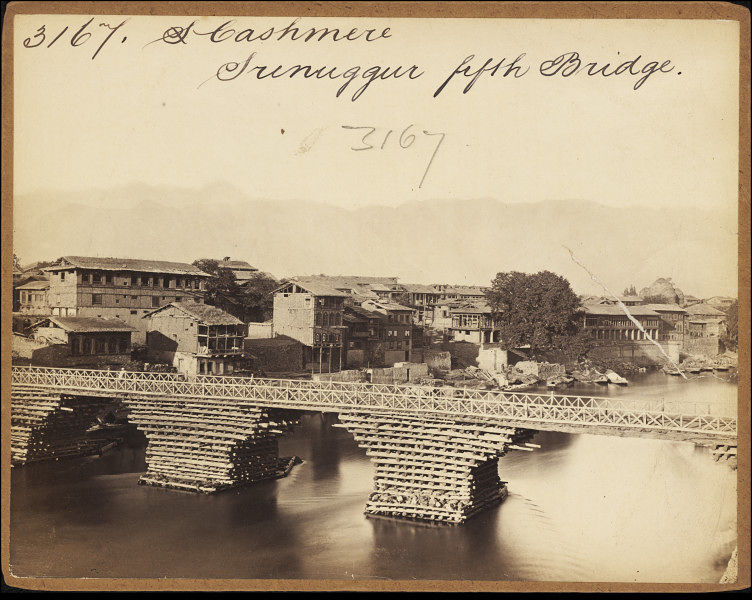 3167. Cashmere
Srenuggur fifth Bridge.
3167